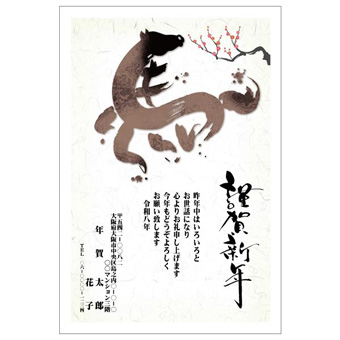 謹賀新年
昨年中はいろいろと
お世話になり
心よりお礼申し上げます
今年もどうぞよろしく
お願い致します
令和八年
〒五四二-〇〇八二
大阪府大阪市中央区島之内〇-〇-〇
〇〇マンション三階
年賀 太郎
花子